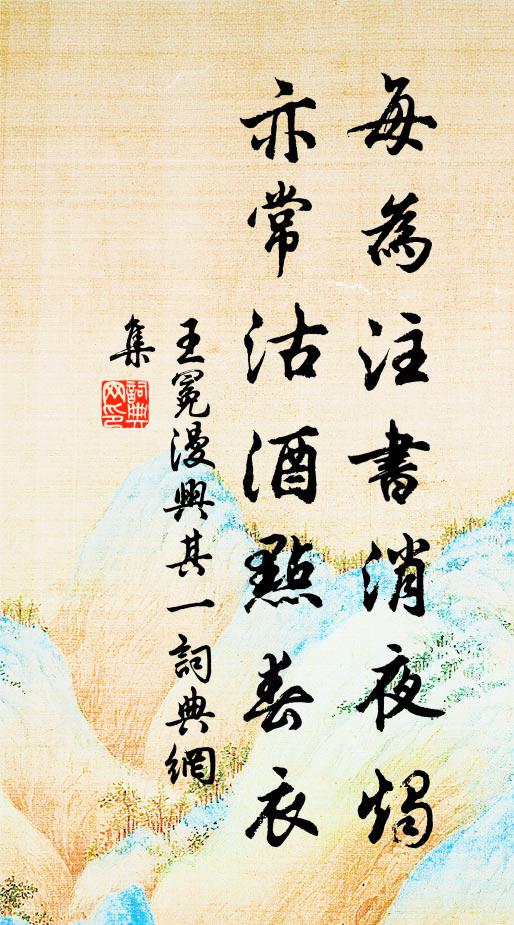 每為注書消夜燭
亦常沽酒點春衣
王冕漫興其一詞典網
集
詞典網印